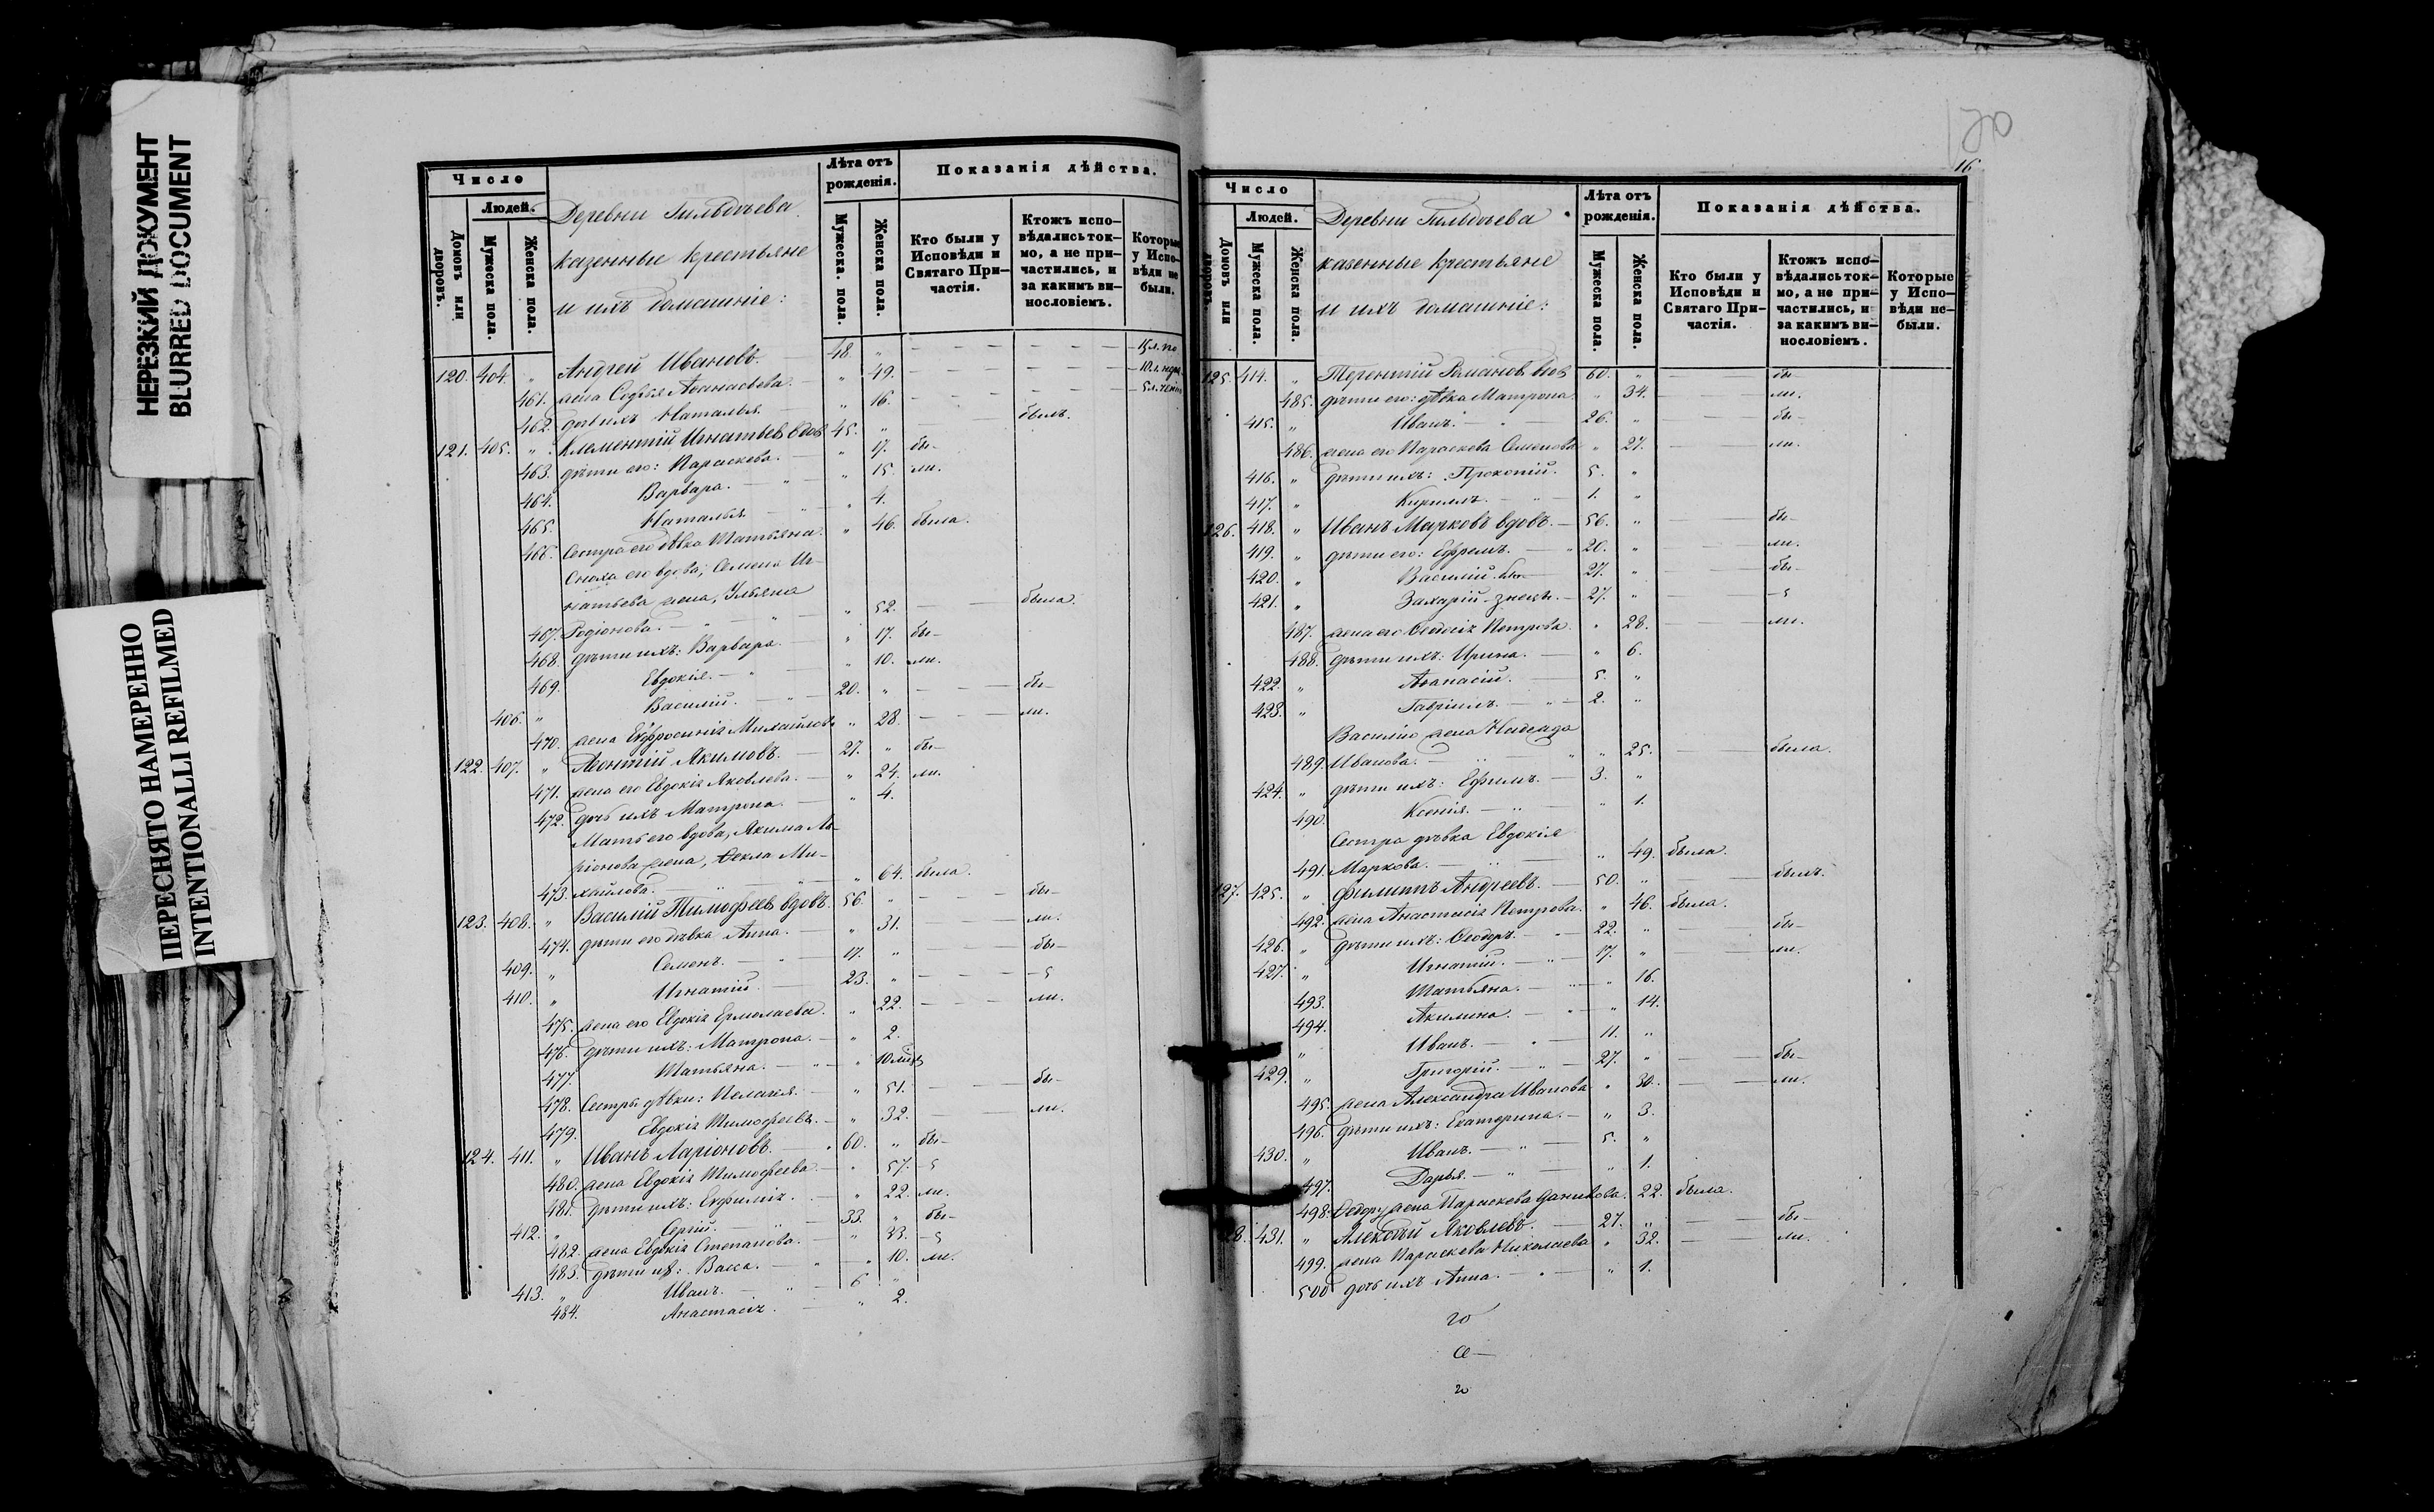 НЕРЕЗКИЙ ДОКУМЕНТ
BLURRED DOCUMENT
ПЕРЕСНЯТО НАМЕРЕННО
INTENTIONALLI REFILMED
Число
Людей.
Домовъ или дворовъ.
Мужеска пола.
Женска пола.
Деревни
казенные крестьяне
и ихъ домашніе:
Лѣта отъ рожденія.
Мужеска. пола.
Женска пола.
Показанія дѣйства.
Кто были у Исповѣди и Святаго Причастія.
Ктожъ исповѣдались токмо, а не причастились, и за какимъ винословіемъ.
Которые у Исповѣди не были.
120. 404. " Андрей Ивановъ. — 48. "
461. жена Софья Аѳанасьева. — " 49.
462. дочь ихъ Наталья. — " 16.
121. 405. " Климентій Игнатьевъ вдов 45. " — былъ.
463. дѣти его: Параскева. — " 17. бы-
464. Варвара. — " 15. ли.
465. Наталья — " 4.
466. Сестра его дѣвка Татьяна. " 46. была.
Сноха его вдова, Семена Иг-
натьева жена, Ульяна
467. Родіонова. — " 52. — была.
468. дѣти ихъ: Варвара. — " 17. бы-
469. Евдокія. — " 10. ли.
406. " Василій. — 20. " — бы-
470. жена Евфросинія Михайлова " 28. — ли.
122. 407. " Леонтій Акимовъ. — 27. " бы-
471. жена его Евдокія Яковлева. — " 24. ли.
472. дочь ихъ Матрона. — " 4.
Мать его вдова, Акима Ла-
ріонова жена, Ѳекла Ми-
473. хайлова. — " 64. была.
123. 408. " Василій Тимофеевъ вдовъ. 56. " — бы-
474. дѣти его дѣвка Анна. — " 31. — ли.
409. " Семенъ. — 17. " — бы-
410. " Игнатій. — 23. "
475. жена его Евдокія Ермолаева. " 22. — ли.
476. дѣти ихъ: Матрона. — " 2.
477. Татьяна. — " 10 мѣс.
478. Сестры дѣвки: Пелагея. — " 51. — бы-
479. Евдокія Тимофеева. — " 32. — ли.
124. 411. " Иванъ Ларіоновъ. — 60. " бы-
480. жена Евдокія Тимофеева. — " 57.
481. дѣти ихъ: Евфимія. — " 22. ли.
412. " Сергій. — 33. " бы-
482. жена Евдокія Степанова. — " 33.
483. дѣти их: Васса. — " 10. ли.
413. " Иванъ. — 6 "
484. Анастасія. — " 2.
16
Число
Людей.
Домовъ или дворовъ.
Мужеска пола.
Женска пола.
Деревни
казенные крестьяне
и ихъ домашніе:
Лѣта отъ рожденія.
Мужеска пола.
Женска пола.
Показанія дѣйства.
Кто были у Исповѣди и Святаго Причастія.
Ктожъ исповѣдались токмо, а не причастились, и за какимъ винословіемъ.
Которые у Исповѣди не были.
125. 414. " Терентій Романовъ вдов 60. " — бы-
485. дѣти его: дѣвка Матрона. " 34. — ли.
415. " Иванъ. — 26. " — бы-
486. жена его Параскева Семенова " 27. — ли.
416. " дѣти ихъ: Прокопій. 5. "
417. " Кириллъ. — 1. "
126. 418. " Иванъ Марковъ вдовъ. — 56. " — бы-
419. " дѣти его: Ефремъ. — 20. " — ли.
420. " Василій. — 27. " — бы-
421. " Захарій — 27. "
487. жена его Ѳеодосія Петрова. " 28. — ли.
488. дѣти ихъ: Ирина. — " 6.
422. " Аѳанасій. 5. "
423. " Гавріилъ. — 2. "
Василію жена Надежда
489. Иванова. — " 25. — была.
424. " дѣти ихъ: Ефимъ. — 3. "
490. Ксенія. — " 1.
Сестра дѣвка Евдокія
491. Маркова. — " 49. была.
127. 425. " Филиппъ Андреевъ. — 50. " — былъ.
492. жена Анастасія Петрова. " 46. была.
426. " дѣти ихъ: Ѳеодоръ. — 22. " — бы-
427. " Игнатій. — 17. " — ли.
493. Татьяна. — " 16.
494. Акилина. — " 14.
" Иванъ. — 11. "
429. " Григорій. — 27. " — бы-
495. жена Александра Иванова " 30. — ли.
496. дѣти ихъ: Екатерина. — " 3.
430. " Иванъ. — 5. "
497. Дарья. — " 1.
498. Ѳеодору жена Параскева Данилова. 22. была.
431. " Алексѣй Яковлевъ. — 27. " — бы-
499. жена Параскева Николаева " 32. — ли.
500 дочь ихъ Анна. — " 1.